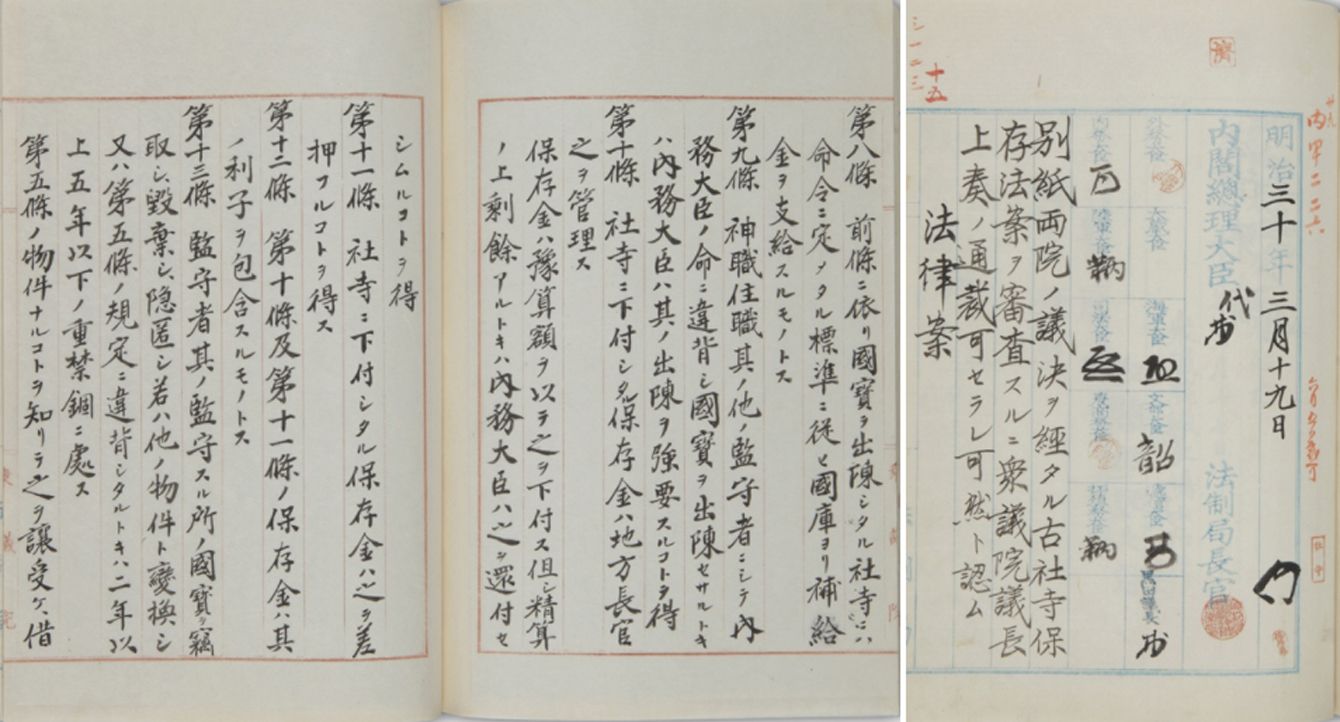 明治三十年三月十九日
内閣總理大臣
代
法制局長官
外務大臣
大藏大臣
海軍大臣
文部大臣
遞信大臣
黒田議長
内務大臣
陸軍大臣
司法大臣
農商務大臣
拓殖務大臣
別紙両院ノ議決ヲ經タル古社寺保
存法案ヲ審査スルニ衆議院議長
上奏ノ通裁可セラレ可然ト認ム
法律案
十五
内甲二二六
第八條 前條ニ依リ國寶ヲ出陳シタル社寺ニハ
命令ニ定メタル標準ニ従ヒ國庫ヨリ補給
金ヲ支給スルモノトス
第九條 神職住職其ノ他ノ監守者ニシテ内
務大臣ノ命ニ違背シ國寶ヲ出陳セサルトキ
ハ内務大臣ハ其ノ出陳ヲ強要スルコトヲ得
第十條 社寺ニ下付シタル保存金ハ地方長官
之ヲ管理ス
保存金ハ豫算額ヲ以テ之ヲ下付ス但シ精算
ノ上剰餘アルトキハ内務大臣ハ之ヲ還付セ
シムルコトヲ得
第十一條 社寺ニ下付シタル保存金ハ之ヲ差
押フルコトヲ得ス
第十二條 第十條及第十一條ノ保存金ハ其
ノ利子ヲ包含スルモノトス
第十三條 監守者其ノ監守スル所ノ國寶ヲ竊
取シ、毀棄シ、隠匿シ若ハ他ノ物件ト變換シ
又ハ第五條ノ規定ニ違背シタルトキハ二年以
上五年以下ノ重禁錮ニ處ス
第五條ノ物件ナルコトヲ知リテ之ヲ讓受ケ、借